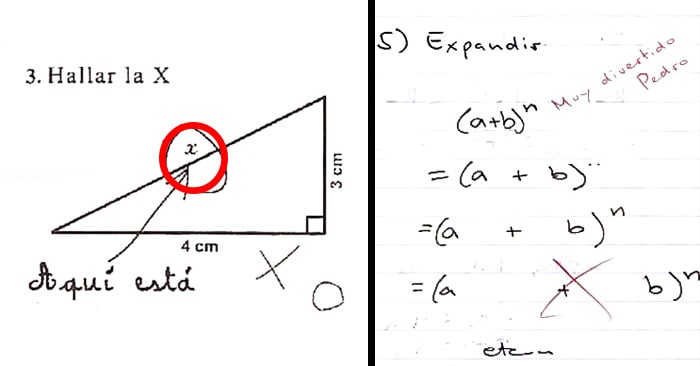 3. Hallar la X
x
3 cm
4 cm
Aquí está
X
O
5) Expandir
Muy divertido
Pedro
(a+b)ⁿ
= (a + b)¨
=(a + b)ⁿ
= (a + b)ⁿ
etc